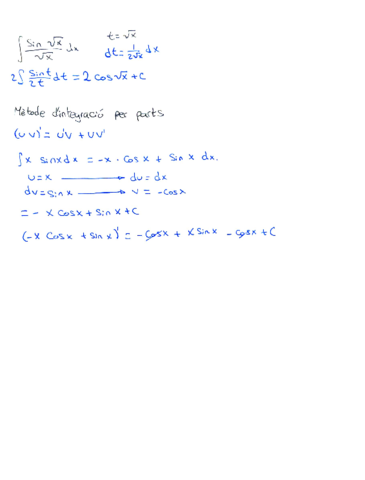 ∫ sin √x / √x dx    t = √x
dt = 1/(2√x) dx
2∫ sin t / 2t dt = 2 cos √x + C
Mètode d'integració per parts
(u v)' = u'v + uv'
∫x sinx dx = -x · cos x + sin x dx.
u = x ⟶ du = dx
dv = sin x ⟶ v = -cosx
= - x cosx + sin x + C
(-x cosx + sin x)' = - cosx + x sinx - cosx + C